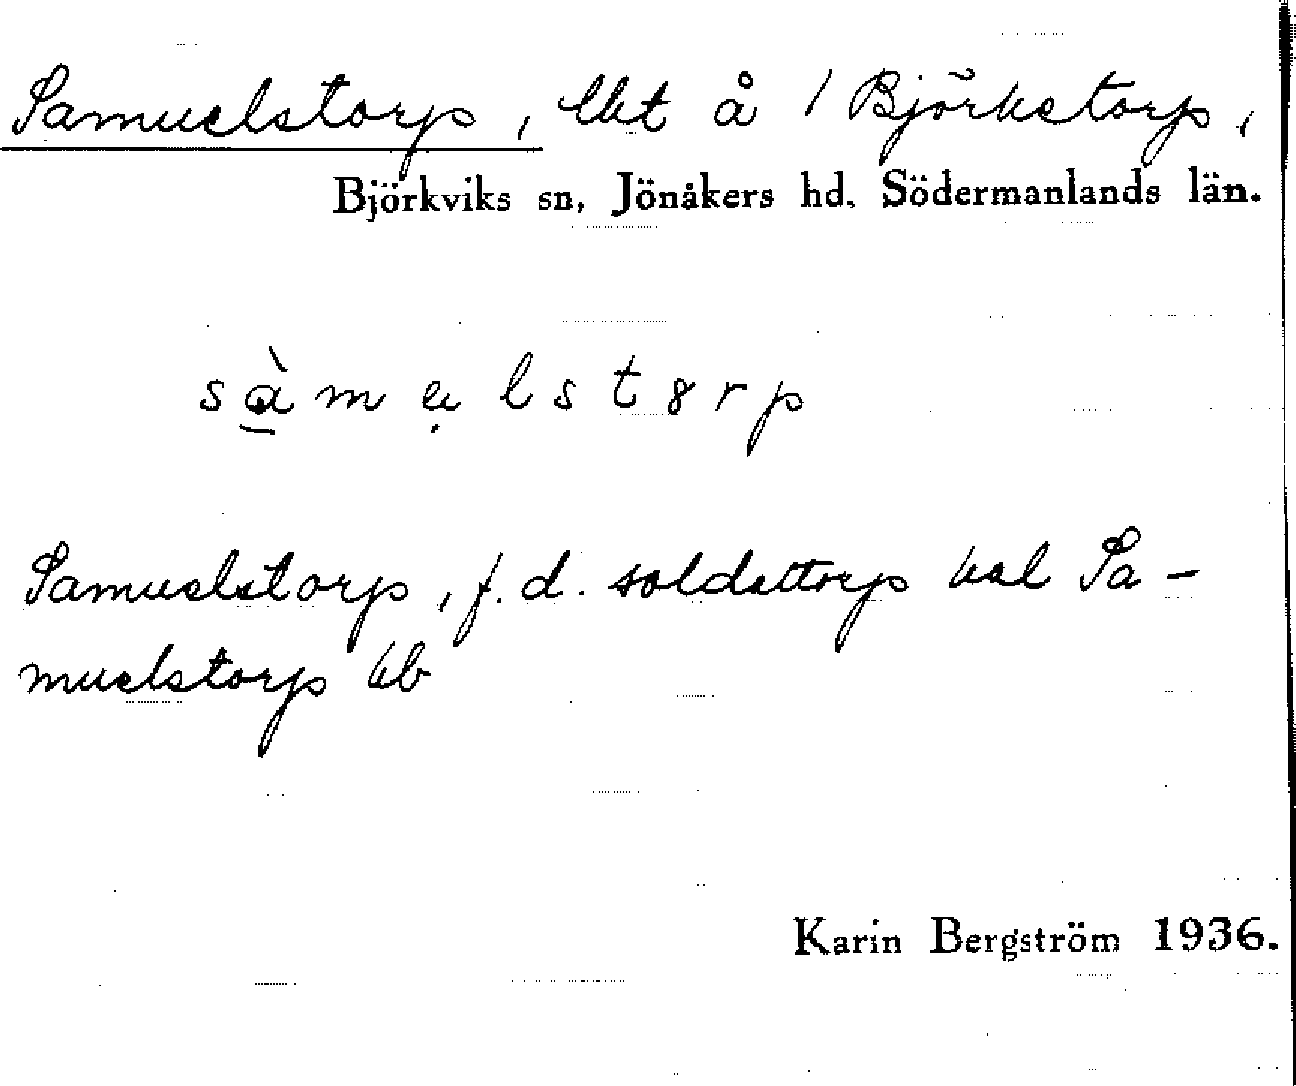 Samuelstorp, lht å 1 Björkstorp,
Björkviks sn, Jönåkers hd. Södermanlands län.
Samuelstorp, f.d. soldattorp val Sa-
muelstorp kb
Karin Bergström 1936.